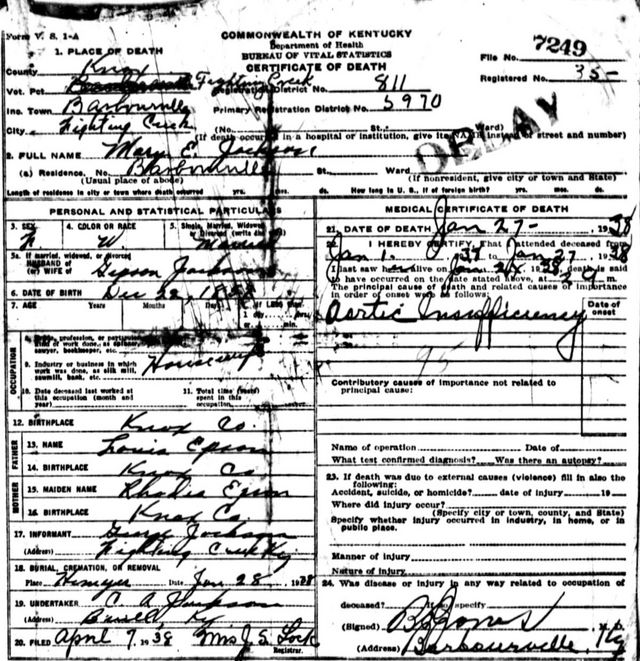 Form V. S. 1-A
COMMONWEALTH OF KENTUCKY
Department of Health
BUREAU OF VITAL STATISTICS
CERTIFICATE OF DEATH
File No. 7249
Registered No. 35-
1. PLACE OF DEATH
County Knox
Vot. Pct Fighting Creek
Registration District No. 811
Inc. Town Barbourville
Primary Registration District No. 5970
City Fighting Creek (No. St. Ward)
(If death occurred in a hospital or institution, give its NAME instead of street and number)
DELAY
2. FULL NAME Mary E. Jackson
(a) Residence. No. Barbourville St. Ward
(Usual place of abode) (If nonresident, give city or town and State)
Length of residence in city or town where death occurred yrs. mos. ds. How long in U. S., if of foreign birth? yrs. mos. ds.
PERSONAL AND STATISTICAL PARTICULARS
3. SEX 4. COLOR OR RACE 5. Single, Married, Widowed or Divorced (write the word)
F W Married
5a. If married, widowed, or divorced
HUSBAND of
(or) WIFE of Jackson
6. DATE OF BIRTH Dec 22, 1858
7. AGE Years Months Days If LESS than 1 day
OCCUPATION
8. Trade, profession, or particular kind of work done, as spinner, sawyer, bookkeeper, etc.
9. Industry or business in which work was done, as silk mill, sawmill, bank, etc. Housewife
10. Date deceased last worked at this occupation (month and year)
11. Total time (years) spent in this occupation
12. BIRTHPLACE Knox Co.
FATHER
13. NAME Louis Epson
14. BIRTHPLACE Knox Co
MOTHER
15. MAIDEN NAME Rhoda Epson
16. BIRTHPLACE Knox Co.
17. INFORMANT George Jackson
(Address) Fighting Creek Ky
18. BURIAL, CREMATION, OR REMOVAL
Place Date Jan 28 1938
19. UNDERTAKER C A Jackson
(Address) Ky
20. FILED April 7, 1938 Mrs J. S. Lock
Registrar.
MEDICAL CERTIFICATE OF DEATH
21. DATE OF DEATH Jan 27- 1938
22. I HEREBY CERTIFY, That I attended deceased from
Jan 1. 1937 to Jan 27 1938
I last saw her alive on Jan 1938, death is said
to have occurred on the date stated above, at 3 m.
The principal cause of death and related causes of importance in order of onset were as follows:
Date of onset
Aortic Insufficiency
95
Contributory causes of importance not related to principal cause:
Name of operation Date of
What test confirmed diagnosis? Was there an autopsy?
23. If death was due to external causes (violence) fill in also the following:
Accident, suicide, or homicide? date of injury 19
Where did injury occur?
(Specify city or town, county, and State)
Specify whether injury occurred in industry, in home, or in public place.
Manner of injury
Nature of injury
24. Was disease or injury in any way related to occupation of
deceased? If so, specify
(Signed) Jones
(Address) Barbourville, Ky